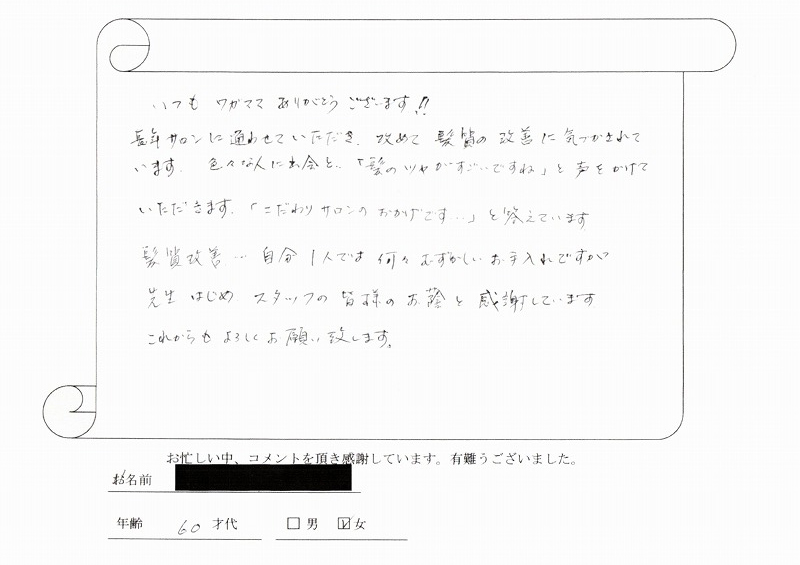 いつも ワガママ ありがとう ございます!!
長年サロンに通わせていただき、改めて 髪質の改善に気づかされて
います。 色々な人に出会と、「髪のツヤがすごいですね」と声をかけて
いただきます。「こだわりサロンのおかげです…」と答えています
髪質改善… 自分1人では何々むずかしいお手入れですが
先生はじめ スタッフの皆様のお蔭と感謝しています
これからもよろしくお願い致します。
お忙しい中、コメントを頂き感謝しています。有難うございました。
お名前
年齢 60 才代 □ 男 ☑ 女